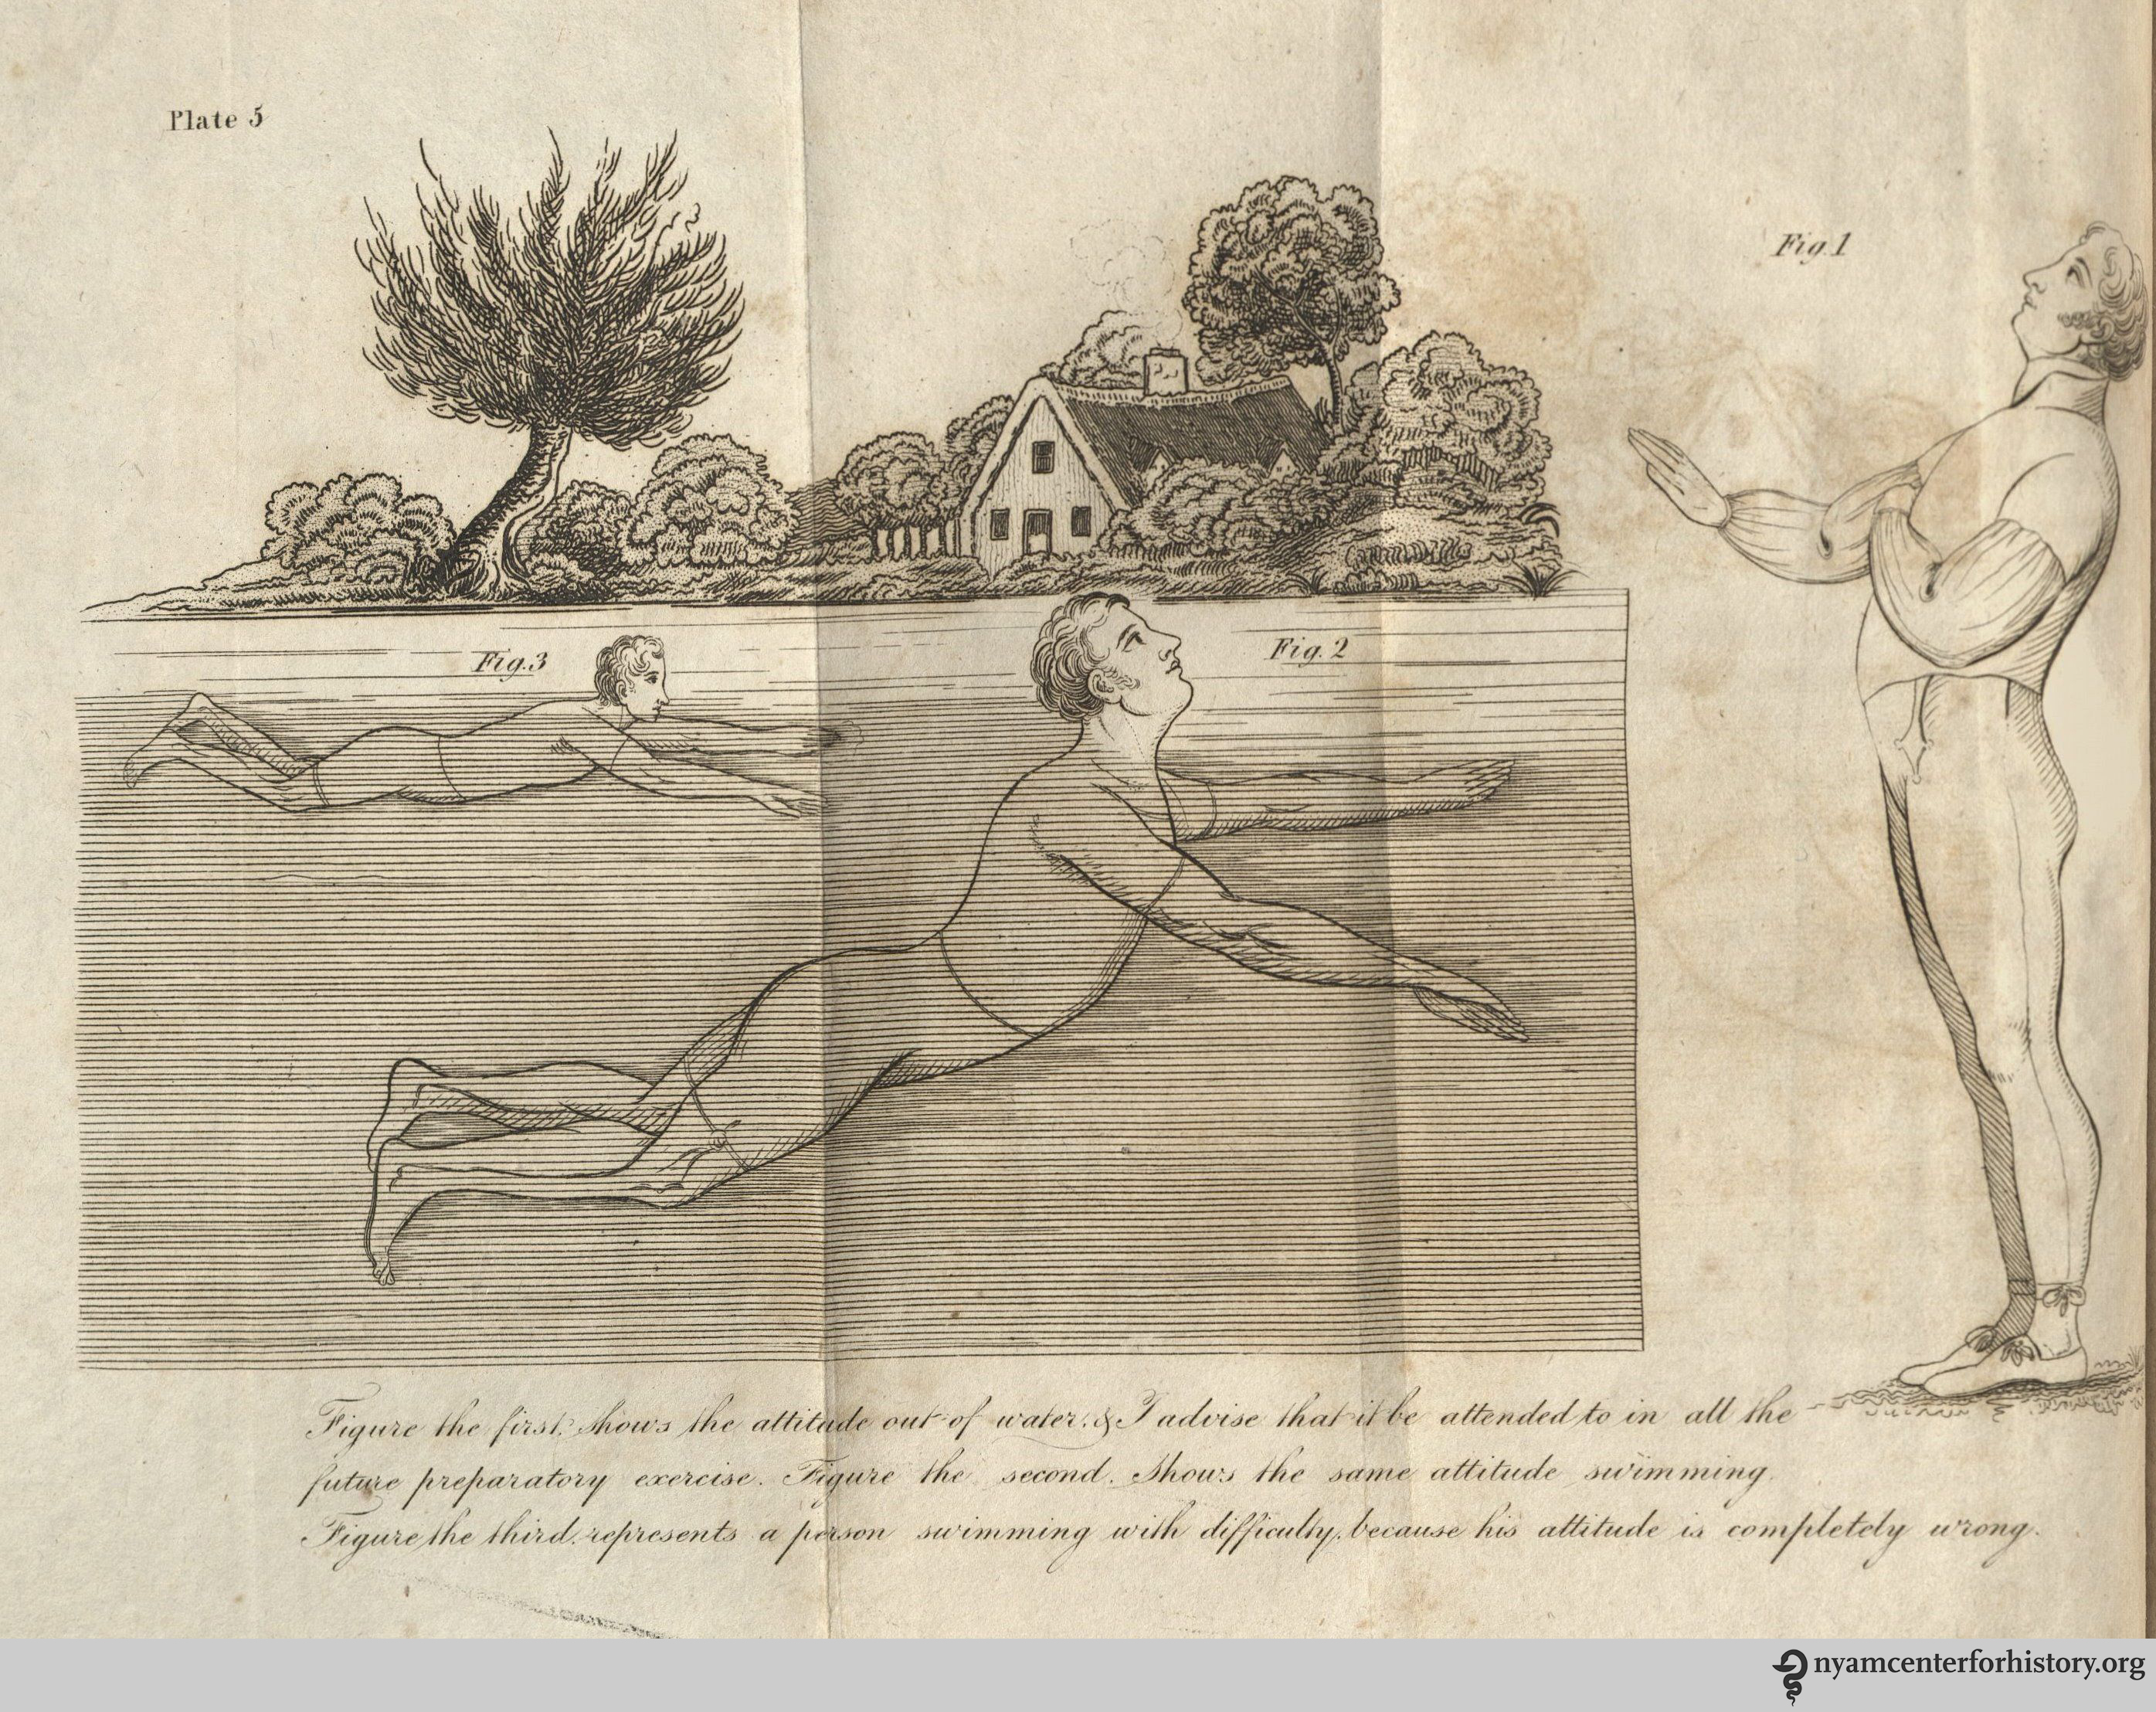 Plate 5
Fig. 1
Fig. 3
Fig. 2
Figure the first, shows the attitude out of water. & I advise that it be attended to in all the
future preparatory exercise. Figure the second. Shows the same attitude swimming.
Figure the third. represents a person swimming with difficulty, because his attitude is completely wrong.
nyamcenterforhistory.org